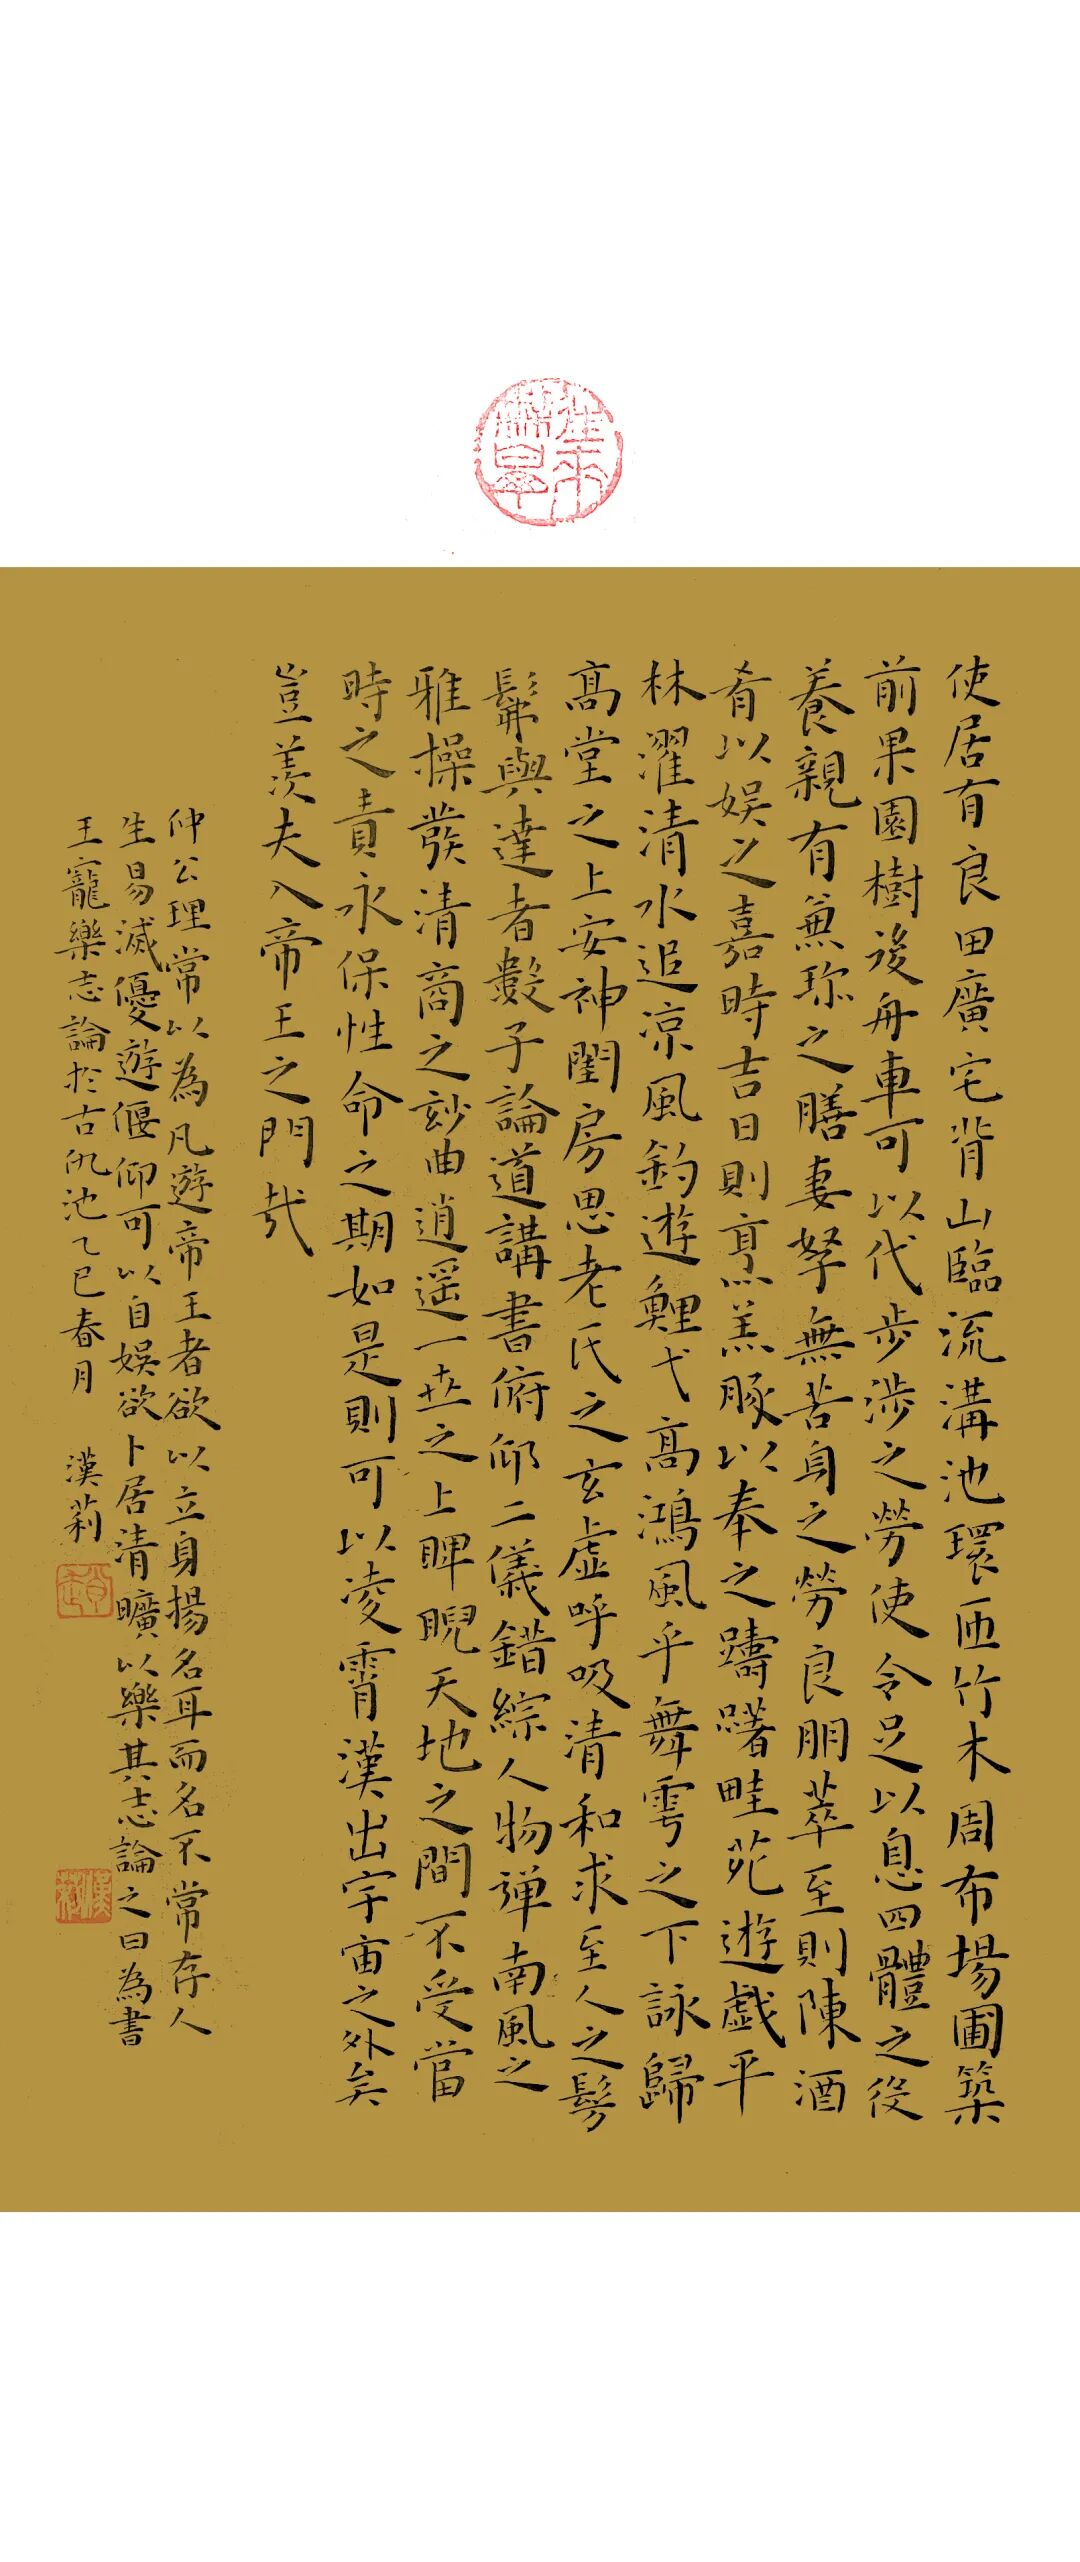 使居有良田廣宅背山臨流溝池環匝竹木周布場圃築
前果園樹後舟車可以代步涉之勞使令足以息四體之役
養親有兼珎之膳妻孥無苦身之勞良朋萃至則陳酒
肴以娱之嘉時吉日則烹羔豚以奉之躊躇畦苑遊戯平
林濯清水追涼風釣遊鯉弋高鴻風乎舞雩之下詠歸
高堂之上安神閨房思老氏之玄虛呼吸清和求至人之髣
髴與達者數子論道講書俯仰二儀錯綜人物彈南風之
雅操發清商之玅曲逍遥一世之上睥睨天地之間不受當
時之責永保性命之期如是則可以凌霄漢出宇宙之外矣
豈羨夫入帝王之門哉
仲公理常以為凡遊帝王者欲以立身揚名耳而名不常存人
生易滅優遊偃仰可以自娱欲卜居清曠以樂其志論之曰為書
王寵樂志論於古仇池乙巳春月 漢莉
漢莉